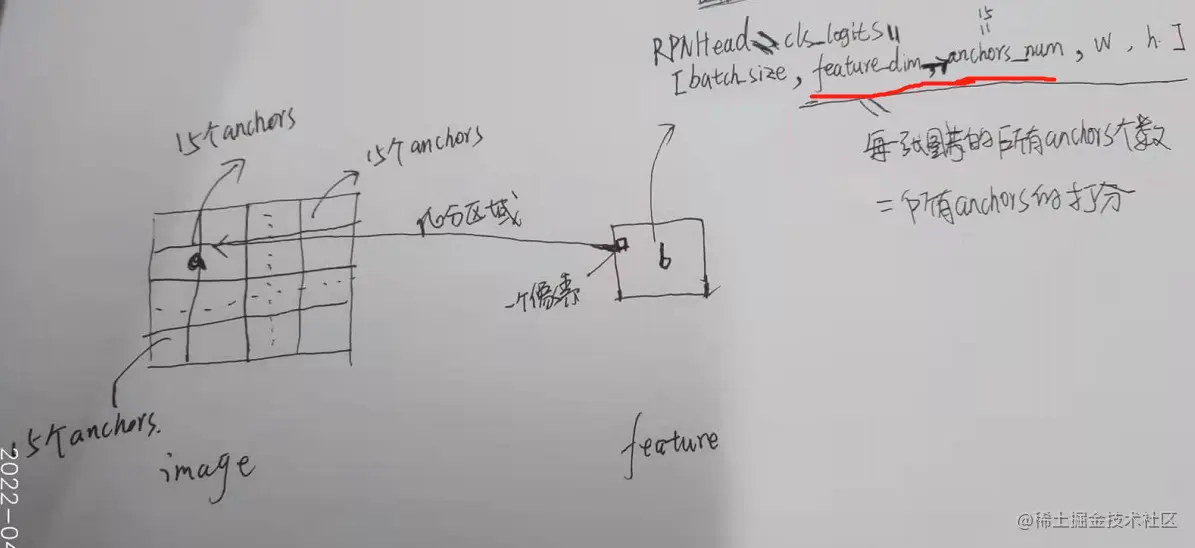 15
RPNHead → cls_logits
[batch_size, feature_dim → anchors_num, w, h]
每一张图片的所有anchors个数
=所有anchors的打分
15个anchors
15个anchors
区域
一个像素
a
b
15个anchors.
image
feature
2022-04
@稀土掘金技术社区